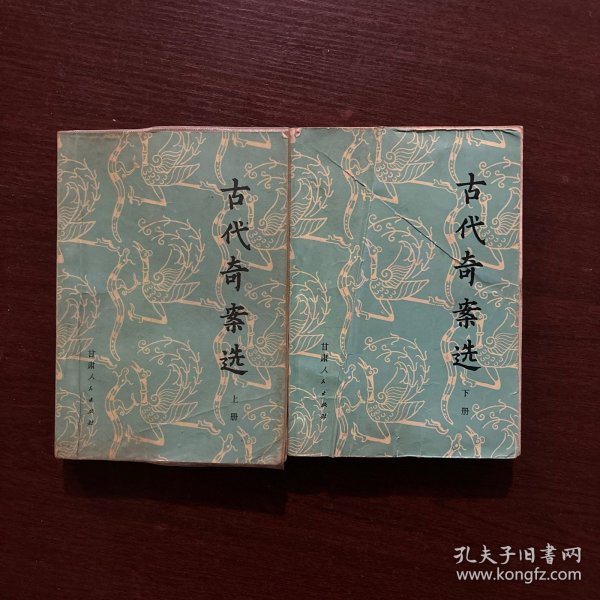 古代奇案选
上册
甘肃人民出版社
古代奇案选
下册
甘肃人民出版社
孔夫子旧書网
www.kongfz.com